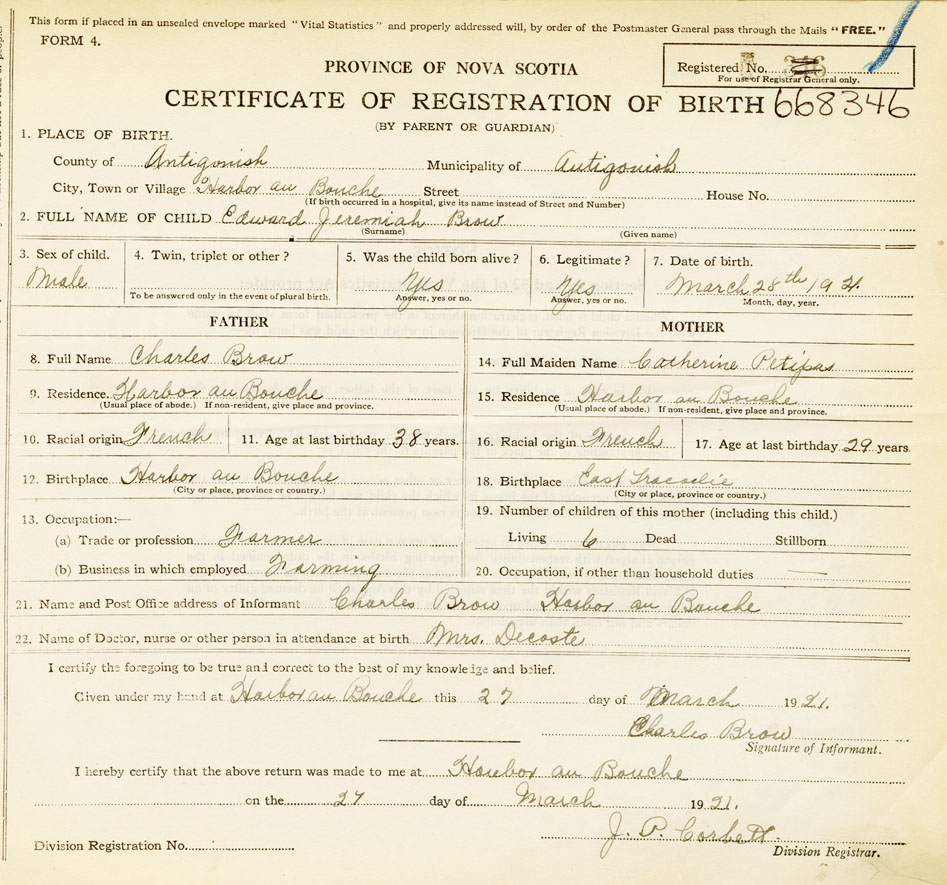 This form if placed in an unsealed envelope marked "Vital Statistics" and properly addressed will, by order of the Postmaster General pass through the Mails "FREE."
FORM 4.
Registered No.
For use of Registrar General only.
PROVINCE OF NOVA SCOTIA
CERTIFICATE OF REGISTRATION OF BIRTH 668346
(BY PARENT OR GUARDIAN)
1. PLACE OF BIRTH.
County of Antigonish Municipality of Antigonish
City, Town or Village Harbor au Bouche Street House No.
(If birth occurred in a hospital, give its name instead of Street and Number)
2. FULL NAME OF CHILD Edward Jeremiah Brow
(Surname) (Given name)
3. Sex of child. 4. Twin, triplet or other? 5. Was the child born alive? 6. Legitimate? 7. Date of birth.
Male Yes Yes March 28th 1921
To be answered only in the event of plural birth. Answer, yes or no. Answer, yes or no. Month, day, year.
FATHER
8. Full Name Charles Brow
9. Residence. Harbor au Bouche
(Usual place of abode.) If non-resident, give place and province.
10. Racial origin French 11. Age at last birthday 38 years.
12. Birthplace Harbor au Bouche
(City or place, province or country.)
13. Occupation:—
(a) Trade or profession Farmer
(b) Business in which employed Farming
MOTHER
14. Full Maiden Name Catherine Petipas
15. Residence Harbor au Bouche
(Usual place of abode.) If non-resident, give place and province.
16. Racial origin French 17. Age at last birthday 29 years.
18. Birthplace East Tracadie
(City or place, province or country.)
19. Number of children of this mother (including this child.)
Living 6 Dead Stillborn
20. Occupation, if other than household duties
21. Name and Post Office address of Informant Charles Brow Harbor au Bouche
22. Name of Doctor, nurse or other person in attendance at birth Mrs. Decoste
I certify the foregoing to be true and correct to the best of my knowledge and belief.
Given under my hand at Harbor au Bouche this 27 day of March 1921.
Charles Brow
Signature of Informant.
I hereby certify that the above return was made to me at Harbor au Bouche
on the 27 day of March 1921.
J. P. Corbett
Division Registration No. Division Registrar.